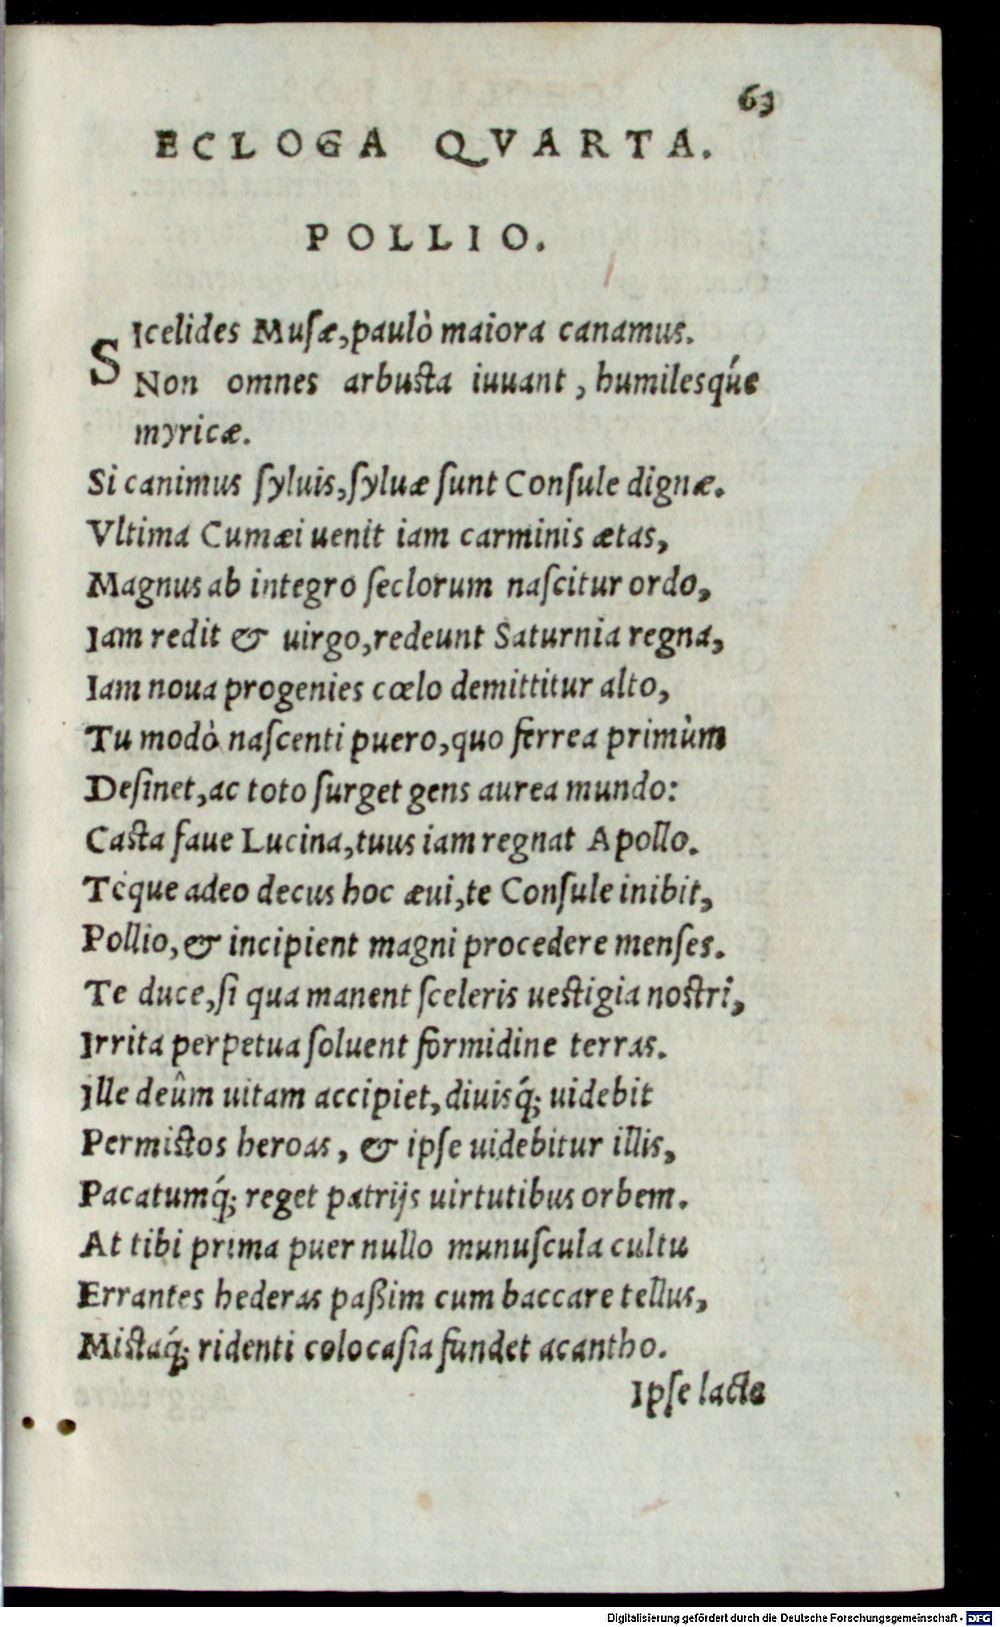 63
ECLOGA QVARTA.
POLLIO.
SIcelides Musæ, paulò maiora canamus.
Non omnes arbusta iuuant, humilesq́ue
myricæ.
Si canimus syluis, syluæ sunt Consule dignæ.
Vltima Cumæi uenit iam carminis ætas,
Magnus ab integro seclorum nascitur ordo,
Iam redit & uirgo, redeunt Saturnia regna,
Iam noua progenies cœlo demittitur alto,
Tu modò nascenti puero, quo ferrea primùm
Desinet, ac toto surget gens aurea mundo:
Casta faue Lucina, tuus iam regnat Apollo.
Téque adeo decus hoc æui, te Consule inibit,
Pollio, & incipient magni procedere menses.
Te duce, si qua manent sceleris uestigia nostri,
Irrita perpetua soluent formidine terras.
Ille deûm uitam accipiet, diuisq́; uidebit
Permistos heroas, & ipse uidebitur illis,
Pacatumq́; reget patrijs uirtutibus orbem.
At tibi prima puer nullo munuscula cultu
Errantes hederas paßim cum baccare tellus,
Mistaq́; ridenti colocasia fundet acantho.
Ipse lacte
Digitalisierung gefördert durch die Deutsche Forschungsgemeinschaft - DFG